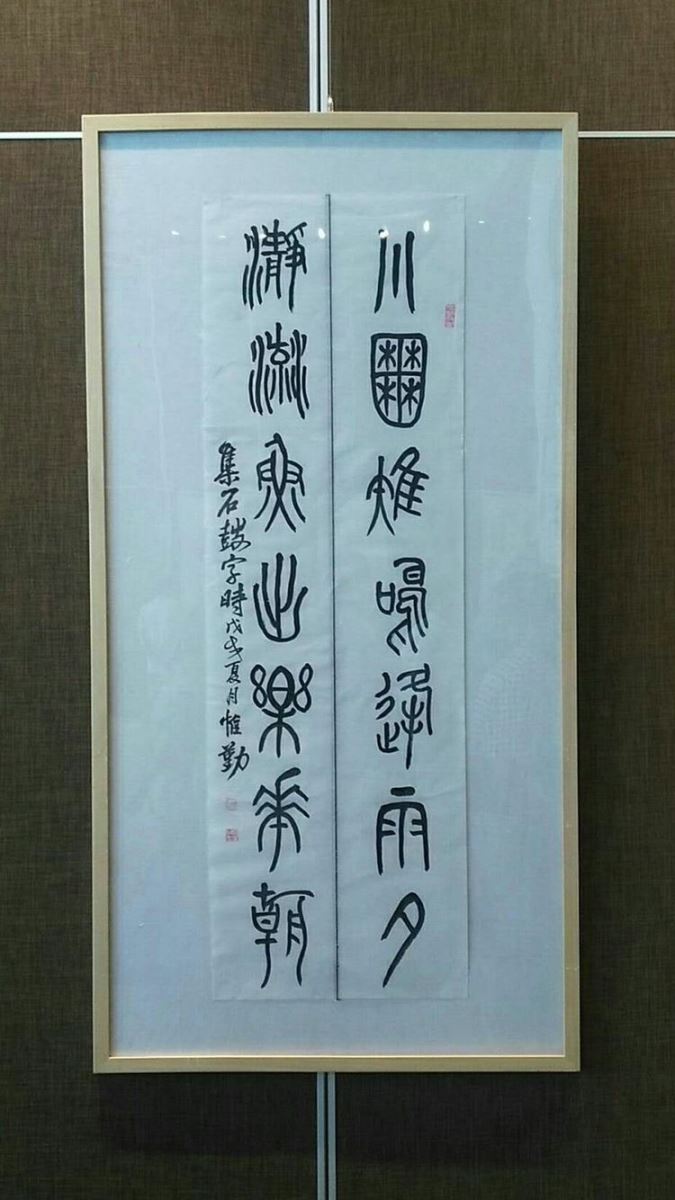 川囿雉鳴逢雨夕
瀞淵魚出樂華朝
集石鼓字時戊戌夏月惟勤